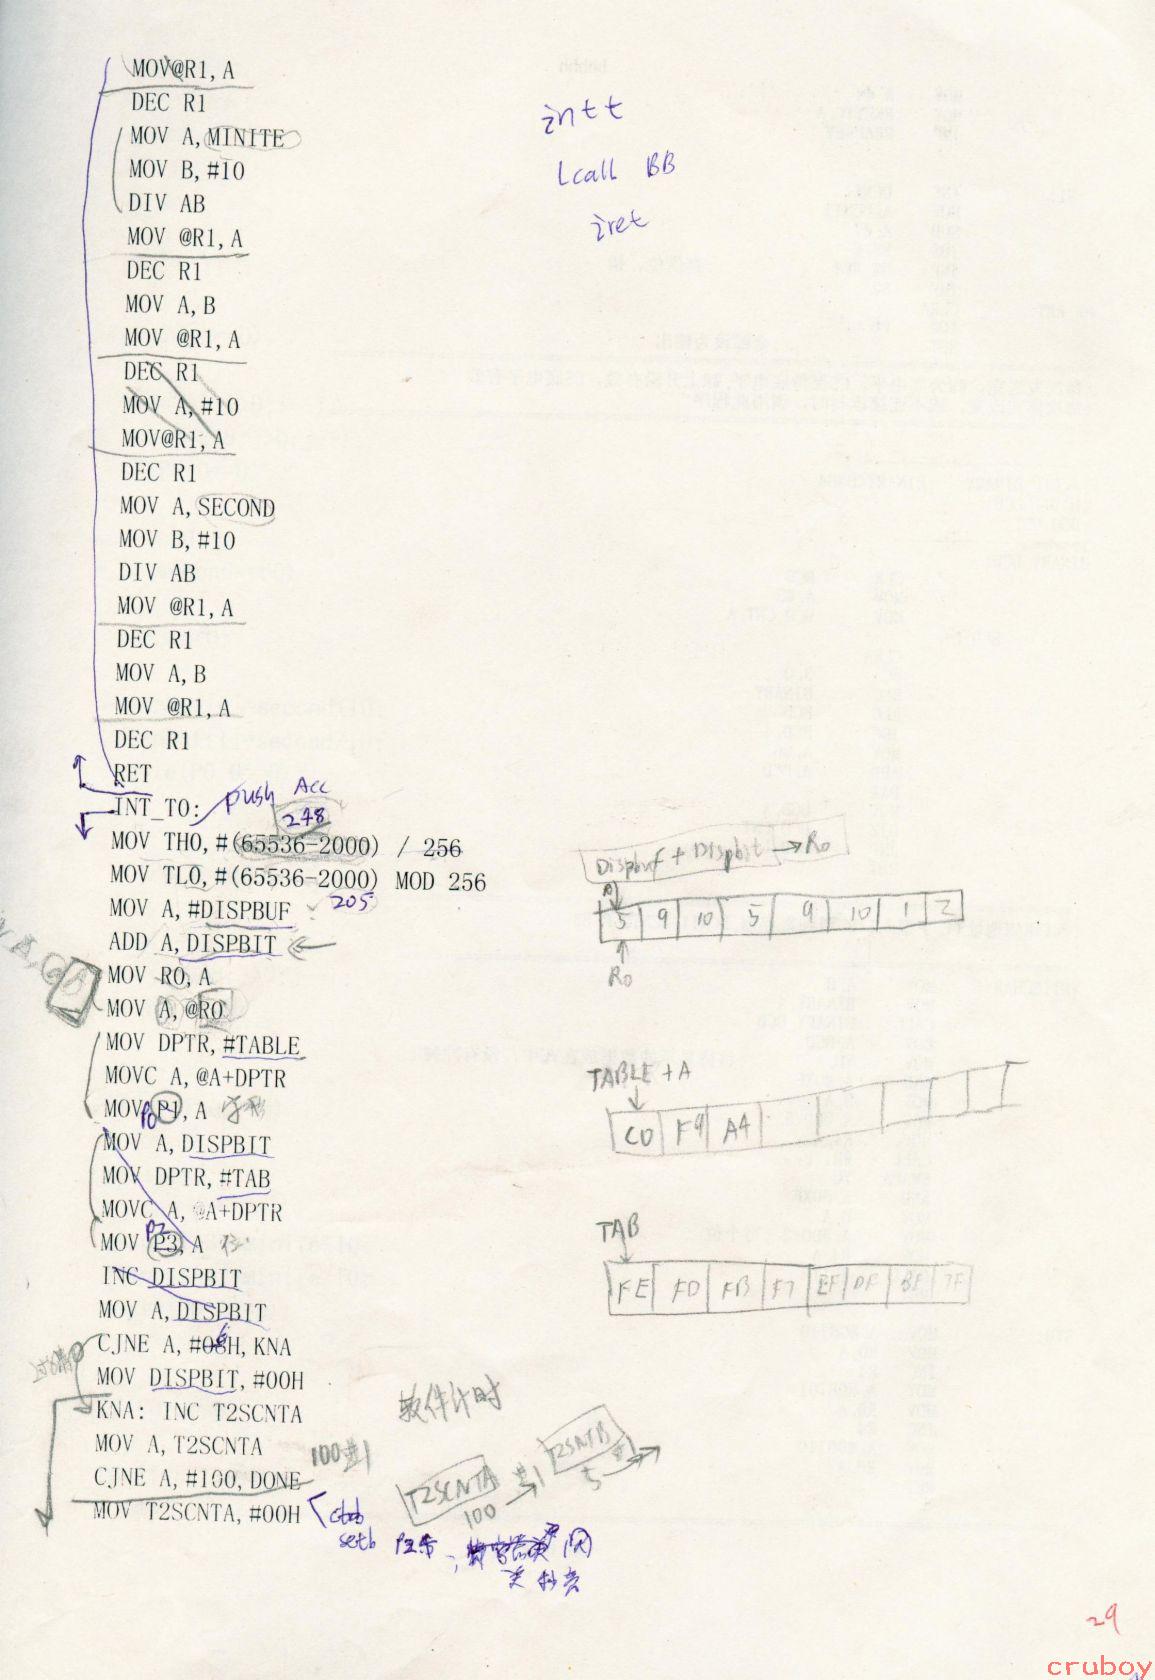 MOV@R1, A
DEC R1
MOV A, MINITE
MOV B, #10
DIV AB
MOV @R1, A
DEC R1
MOV A, B
MOV @R1, A
DEC R1
MOV A, #10
MOV@R1, A
DEC R1
MOV A, SECOND
MOV B, #10
DIV AB
MOV @R1, A
DEC R1
MOV A, B
MOV @R1, A
DEC R1
RET
INT_T0: push Acc
248
MOV TH0, #(65536-2000) / 256
MOV TL0, #(65536-2000) MOD 256
MOV A, #DISPBUF 205
ADD A, DISPBIT
MOV R0, A
MOV A, @R0
MOV DPTR, #TABLE
MOVC A, @A+DPTR
MOV P1, A 字形
P0
MOV A, DISPBIT
MOV DPTR, #TAB
MOVC A, @A+DPTR
P2
MOV P3, A 位
INC DISPBIT
MOV A, DISPBIT
CJNE A, #08H, KNA
6
MOV DISPBIT, #00H
KNA: INC T2SCNTA
MOV A, T2SCNTA
CJNE A, #100, DONE
MOV T2SCNTA, #00H
intt
Lcall BB
iret
Dispbuf + Dispbit → R0
5 9 10 5 9 10 1 2
R0
TABLE + A
C0 F9 A4
TAB
FE FD FB F7 EF DF BF 7F
软件计时
100
T2SCNTA
100
T2SCNTB
5
setb
29
cruboy